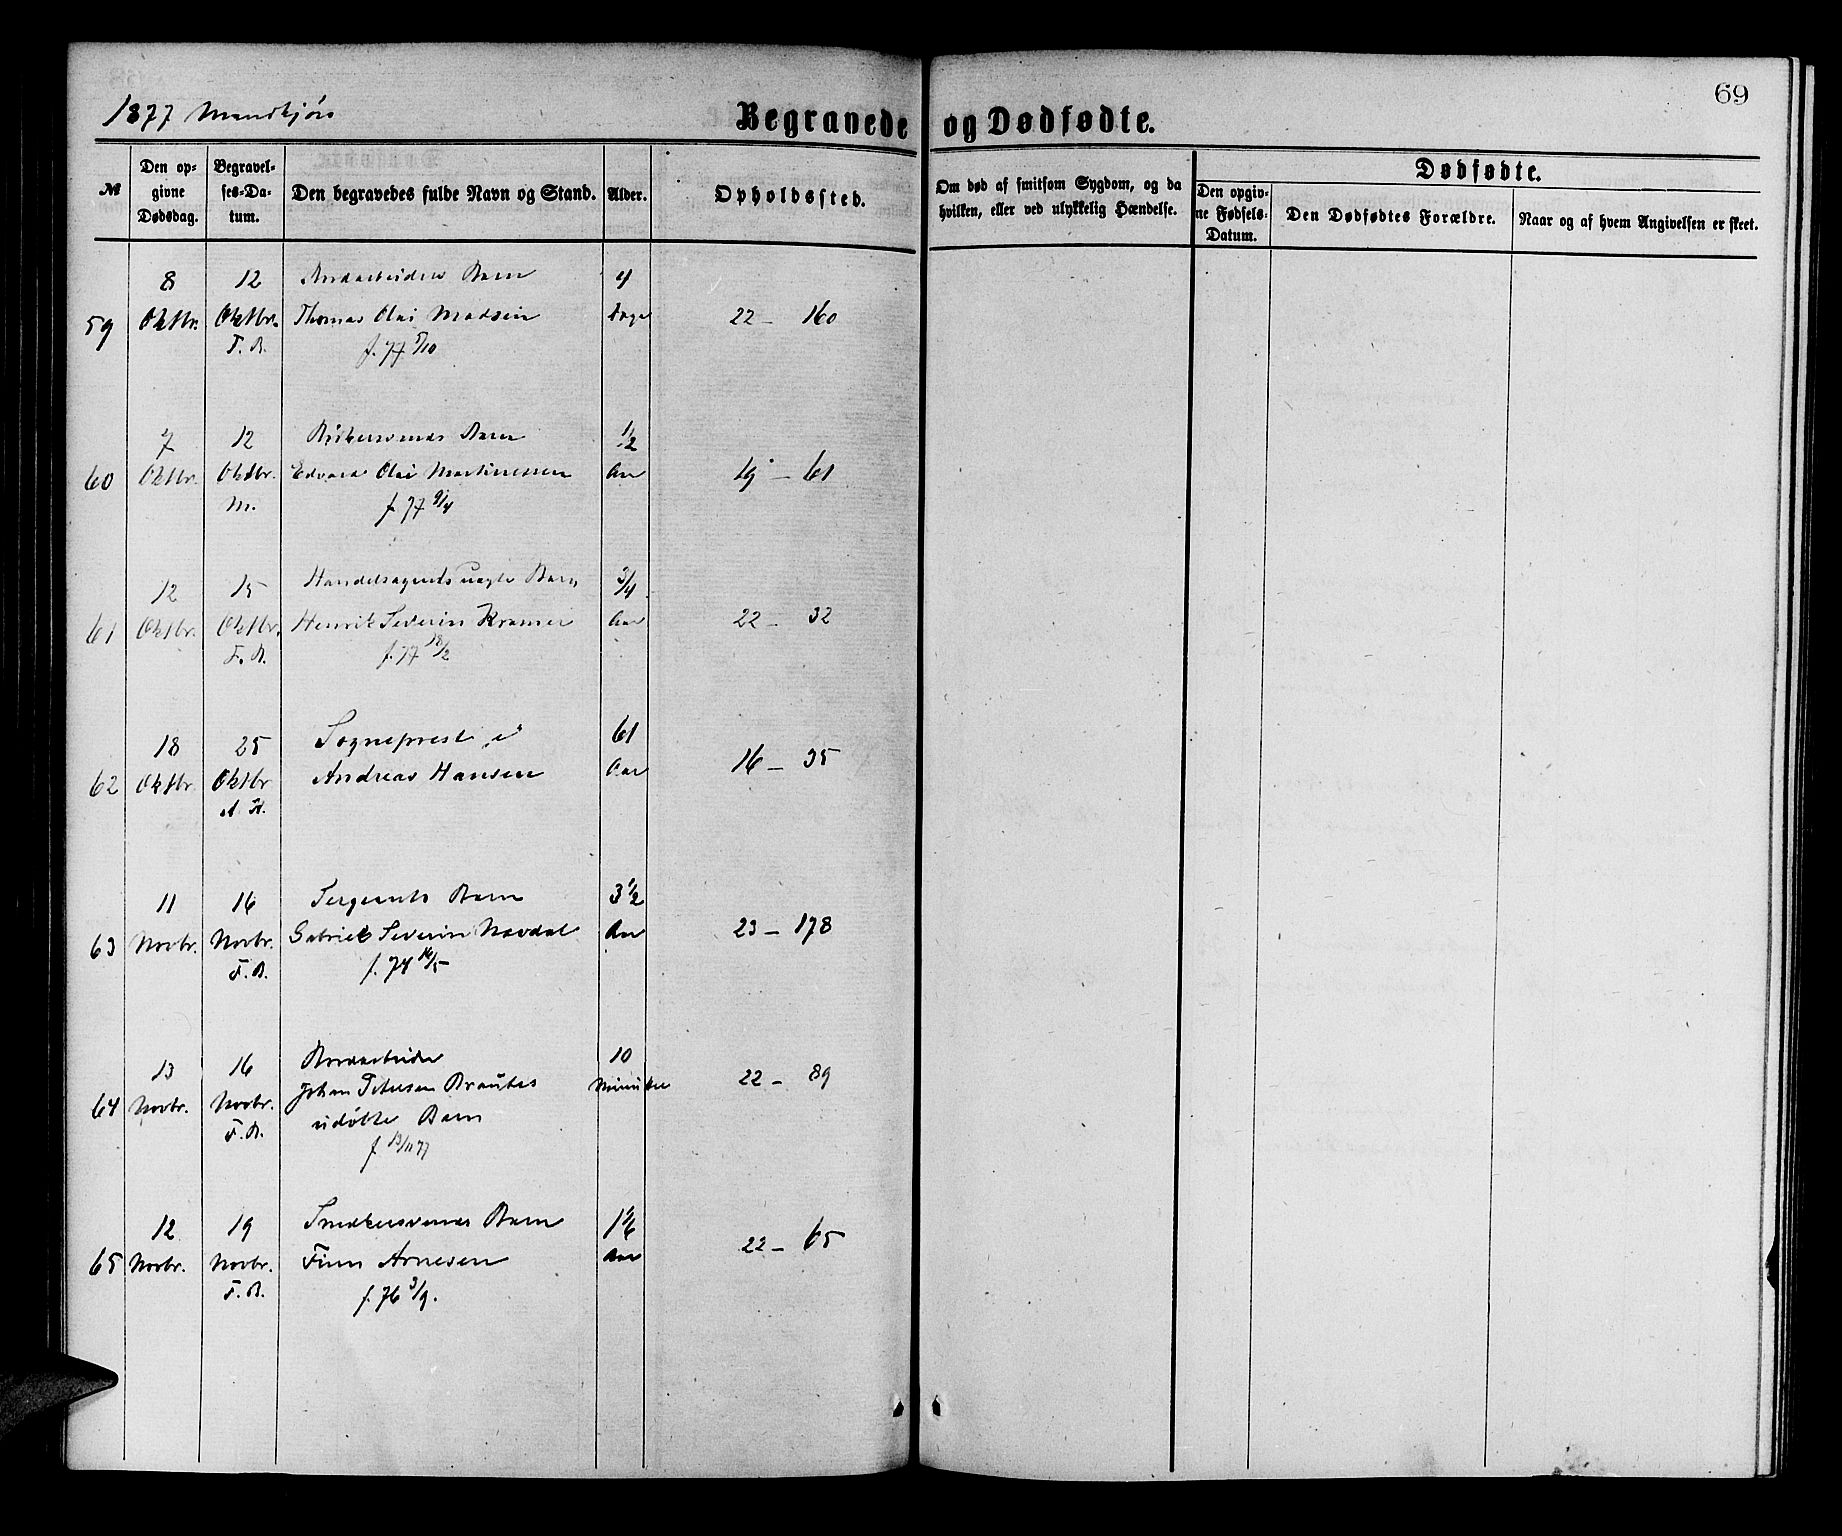 69
1877 Mandkjøn
Begravede og Dødfødte.
№
Den opgivne Dødsdag.
Begravelses-Datum.
Den begravedes fulde Navn og Stand.
Alder.
Opholdssted.
Om død af smitsom Sygdom, og da hvilken, eller ved ulykkelig Hændelse.
Dødfødte.
Den opgivne Fødsels-Datum.
Den Dødfødtes Forældre.
Naar og af hvem Angivelsen er skeet.
8 12 Barn 4
59 Oktbr. Oktbr. Thomas Olai Madsen Dage 22 – 160
F. B. f. 77 5/10
7 12 Barn 1/2
60 Oktbr. Oktbr. Edvard Olai Martinessen Aar 19 – 61
M. f. 77 9/4
12 15 Handelsagents uægte Barn 3/4
61 Oktbr. Oktbr. Henrik Severin Kramer Aar 22 – 32
F. B. f. 77 18/2
18 25 Sogneprest 61
62 Oktbr. Oktbr Andreas Hansen Aar 16 – 35
A. H.
11 16 Sergeants Barn 3 1/2
63 Novbr. Novbr. Gabriel Severin Navdal Aar 23 – 178
F. B. f. 74 16/5
13 16 10
64 Novbr. Novbr. Johan Petersen Brautes Minutter 22 – 89
F. B. udøbte Barn
f. 13/11 77
12 19 Smedersvends Barn 1 1/6
65 Novbr. Novbr. Finn Arnesen Aar 22 – 65
F. B. f. 76 3/9.